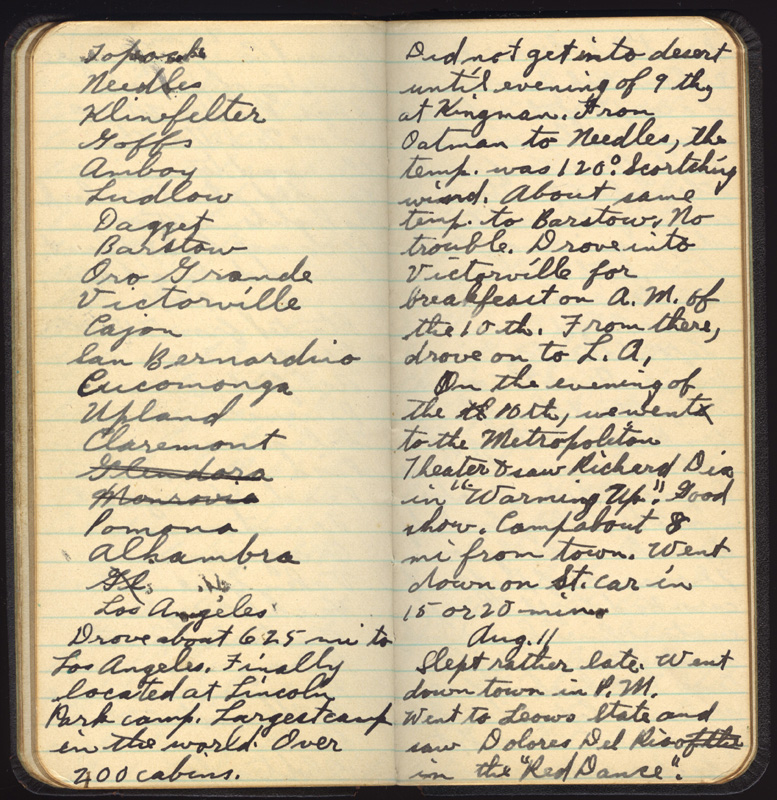 Topock
Needles
Klinefelter
Goffs
Amboy
Ludlow
Dagget
Barstow
Oro Grande
Victorville
Cajon
San Bernardino
Cucomonga
Upland
Claremont
Glendora
Monrovia
Pomona
Alhambra
Gl
Los Angeles
Drove about 625 mi to
Los Angeles. Finally
located at Lincoln
Park camp. Largest camp
in the world. Over
400 cabins.
Did not get into desert
until evening of 9 th,
at Kingman. From
Oatman to Needles, the
temp. was 120°. Scortching
wind. About same
temp. to Barstow. No
trouble. Drove into
Victorville for
breakfeast on A.M. of
the 10 th. From there,
drove on to L.A.
On the evening of
the 10th, we went
to the Metropolitan
Theater & saw Richard Dix
in "Warming Up". Good
show. Camp about 8
mi from town. Went
down on St. car in
15 or 20 min.
Aug. 11
Slept rather late. Went
down town in P.M.
Went to Leows State and
saw Dolores Del Rio of the
in the "Red Dance".